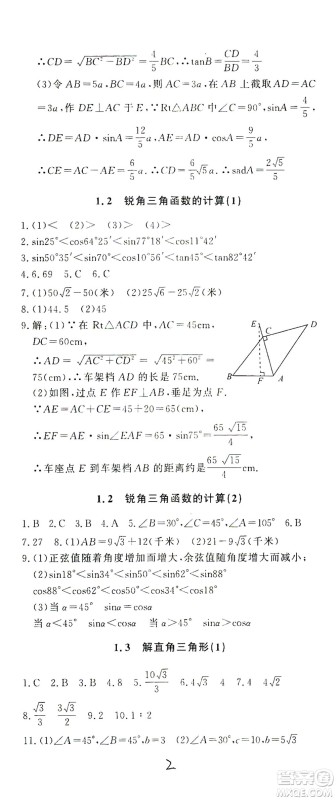 ∴CD=√(BC²−BD²)=4/5 BC,∴tanB=CD/BD=4/3
(3)令AC=5a,BC=5a,在 AB 上截取AD=AC
=3a,作 DE⊥AC于E,∵Rt△ABC中∠C=90°,
∴DE=AD·sinA=12/5 a,AE=AD·cosA=9/5 a,
∴CE=AC−AE=6/5 a,CD=6/5 √5 a,sinα=2√5/5
1.2 锐角三角函数的计算(1)
1.(1)< (2)> (3)> (4)>
2.sin25°<cos64°25′<sin25°18′<cos18°25′
3.sin50°<cos35°<tan45°<tan48°
4.6.69 5.C 6.C
7.(1)50√2−50(米) (2)25√2−25√3(米)
9.解:(1)∵在 Rt△ACD中,AC=45cm,
DC=60cm,
∴AD=√(AC²+CD²)=√(45²+60²)=
75(cm),∴车架档AD的长是75cm.
(2)如图,过点 E 作EF⊥AB,垂足为点F.
∵AE=AC+CE=45+20=65(cm)
∴EF=AE·sinA=65×√15/4=65√15/4
∴车座点E到车架档AB的距离约是65√15/4 cm.
E
C
D
B
F
A
1.2 锐角三角函数的计算(2)
1.B 2.C 3.A 5.∠B=30°,c=4,b=2
7.27 8.(1)AB=9√3+12(千米)
9.(1)正弦值随着角度增大而增大,余弦值随着角度增大而减小;
(2)sin18°<sin34°<sin50°<sin62°<sin88°
cos88°<cos62°<cos50°<cos34°<cos18°
(3)当 α=45° sinα=cosα 当 α<45°
sinα<cosα 当 α>45° sinα>cosα
1.3 解直角三角形(1)
1.C 2.B 4.8 5.10√3/3 6.4√3 7.4/5
9.10.1∶2
11.(1)∠A=45°,∠B=45°,b=3
2